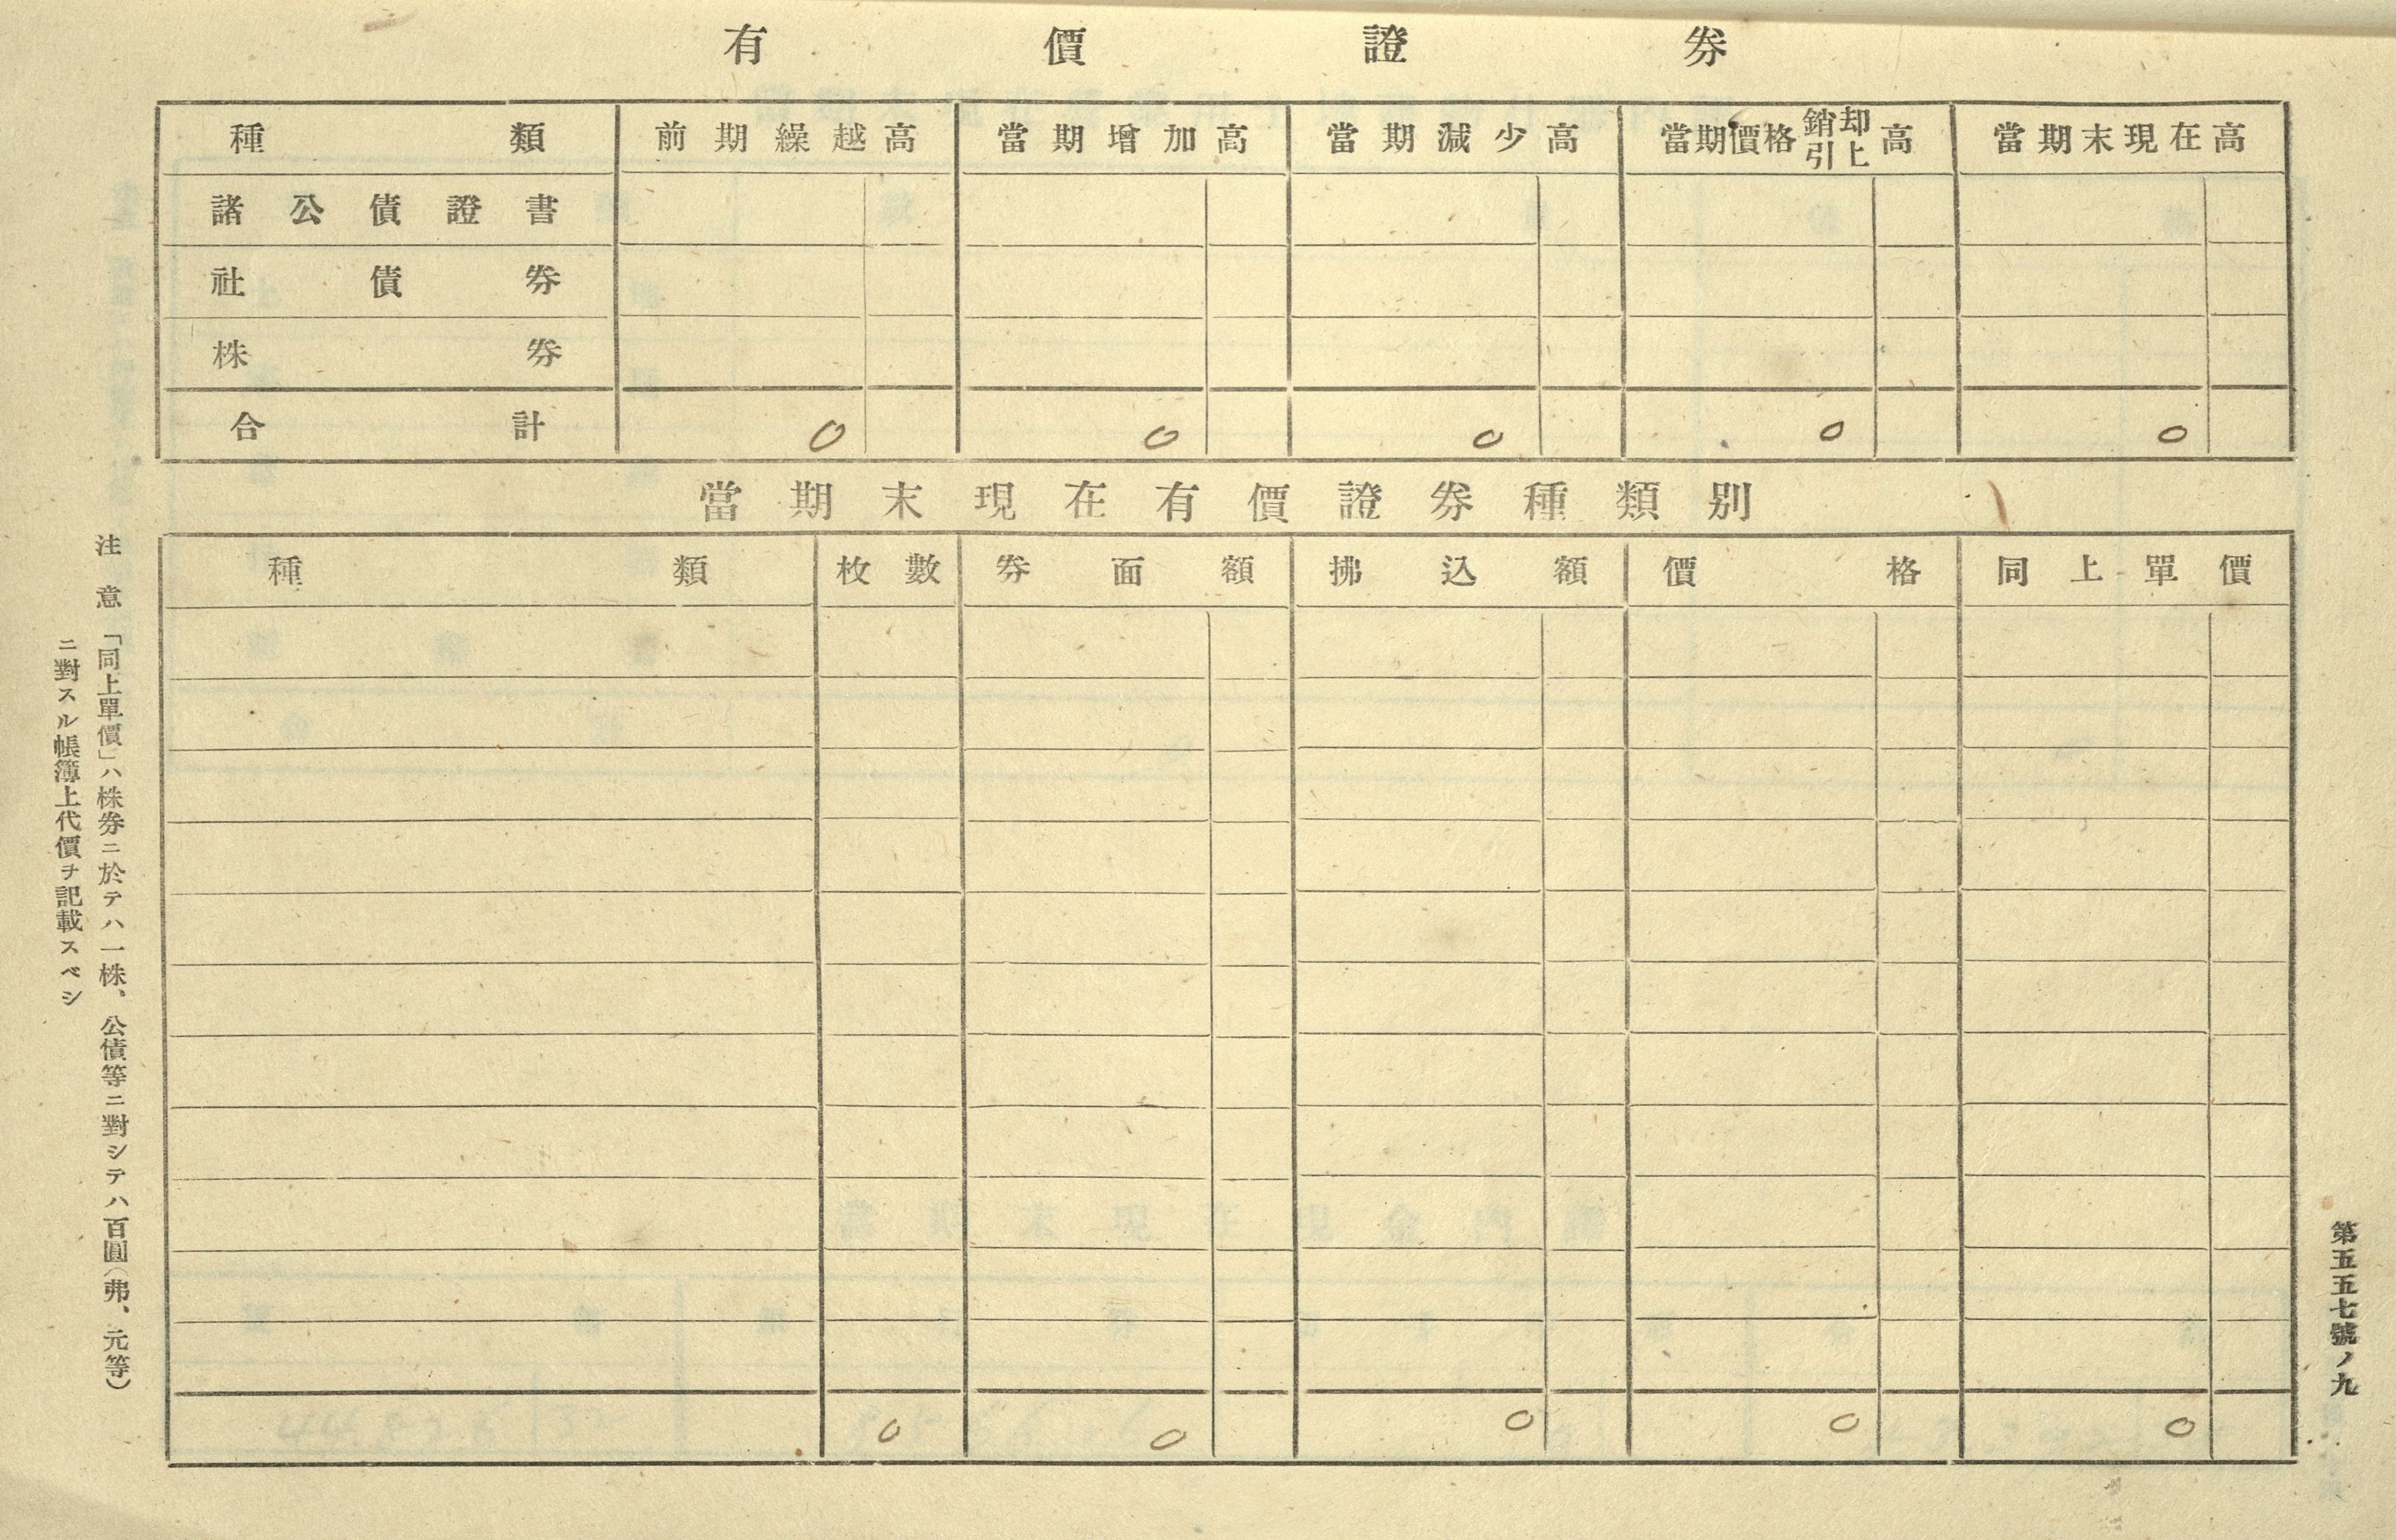 有價證券
種類 前期繰越高 當期增加高 當期減少高 當期價格銷却引上高 當期末現在高
諸公債證書
社債券
株券
合計 0 0 0 0 0
當期末現在有價證券種類別
種類 枚數 券面額 拂込額 價格 同上單價
0 0 0 0 0
注意「同上單價」ハ株券ニ於テハ一株、公債等ニ對シテハ百圓(弗、元等)
ニ對スル帳簿上代價ヲ記載スベシ
第五五七號ノ九